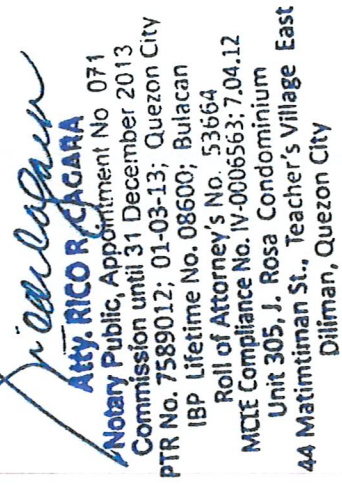 Atty. RICO R. CAGARA
Notary Public, Appointment No 071
Commission until 31 December 2013
PTR No. 7589012; 01-03-13; Quezon City
IBP Lifetime No. 08600; Bulacan
Roll of Attorney's No. 53664
MCIE Compliance No. IV-0006563; 7.04.12
Unit 305, J. Rosa Condominium
44 Matimtiman St., Teacher's Village East
Diliman, Quezon City